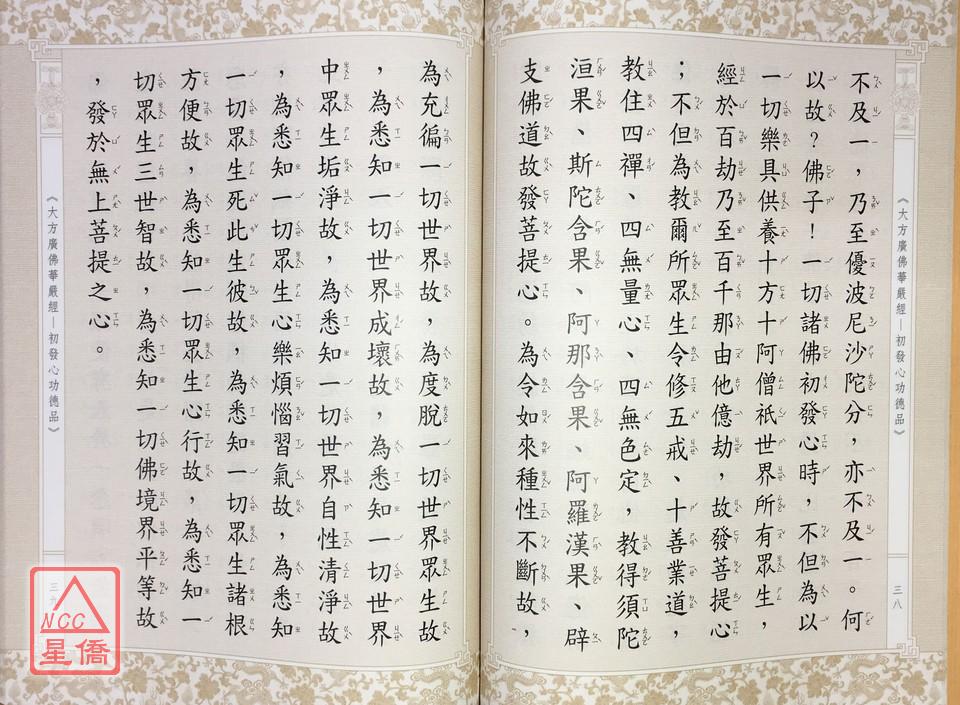 不及一，乃至優波尼沙陀分，亦不及一。何
以故？佛子！一切諸佛初發心時，不但為以
一切樂具供養十方十阿僧祇世界所有眾生，
經於百劫乃至百千那由他億劫，故發菩提心
；不但為教爾所眾生令修五戒、十善業道，
教住四禪、四無量心、四無色定，教得須陀
洹果、斯陀含果、阿那含果、阿羅漢果、辟
支佛道故發菩提心。為令如來種性不斷故，
《大方廣佛華嚴經－初發心功德品》
三八
為充徧一切世界故，為度脫一切世界眾生故
，為悉知一切世界成壞故，為悉知一切世界
中眾生垢淨故，為悉知一切世界自性清淨故
，為悉知一切眾生心樂煩惱習氣故，為悉知
一切眾生死此生彼故，為悉知一切眾生諸根
方便故，為悉知一切眾生心行故，為悉知一
切眾生三世智故，為悉知一切佛境界平等故
，發於無上菩提之心。
《大方廣佛華嚴經－初發心功德品》
三九
NCC
星僑